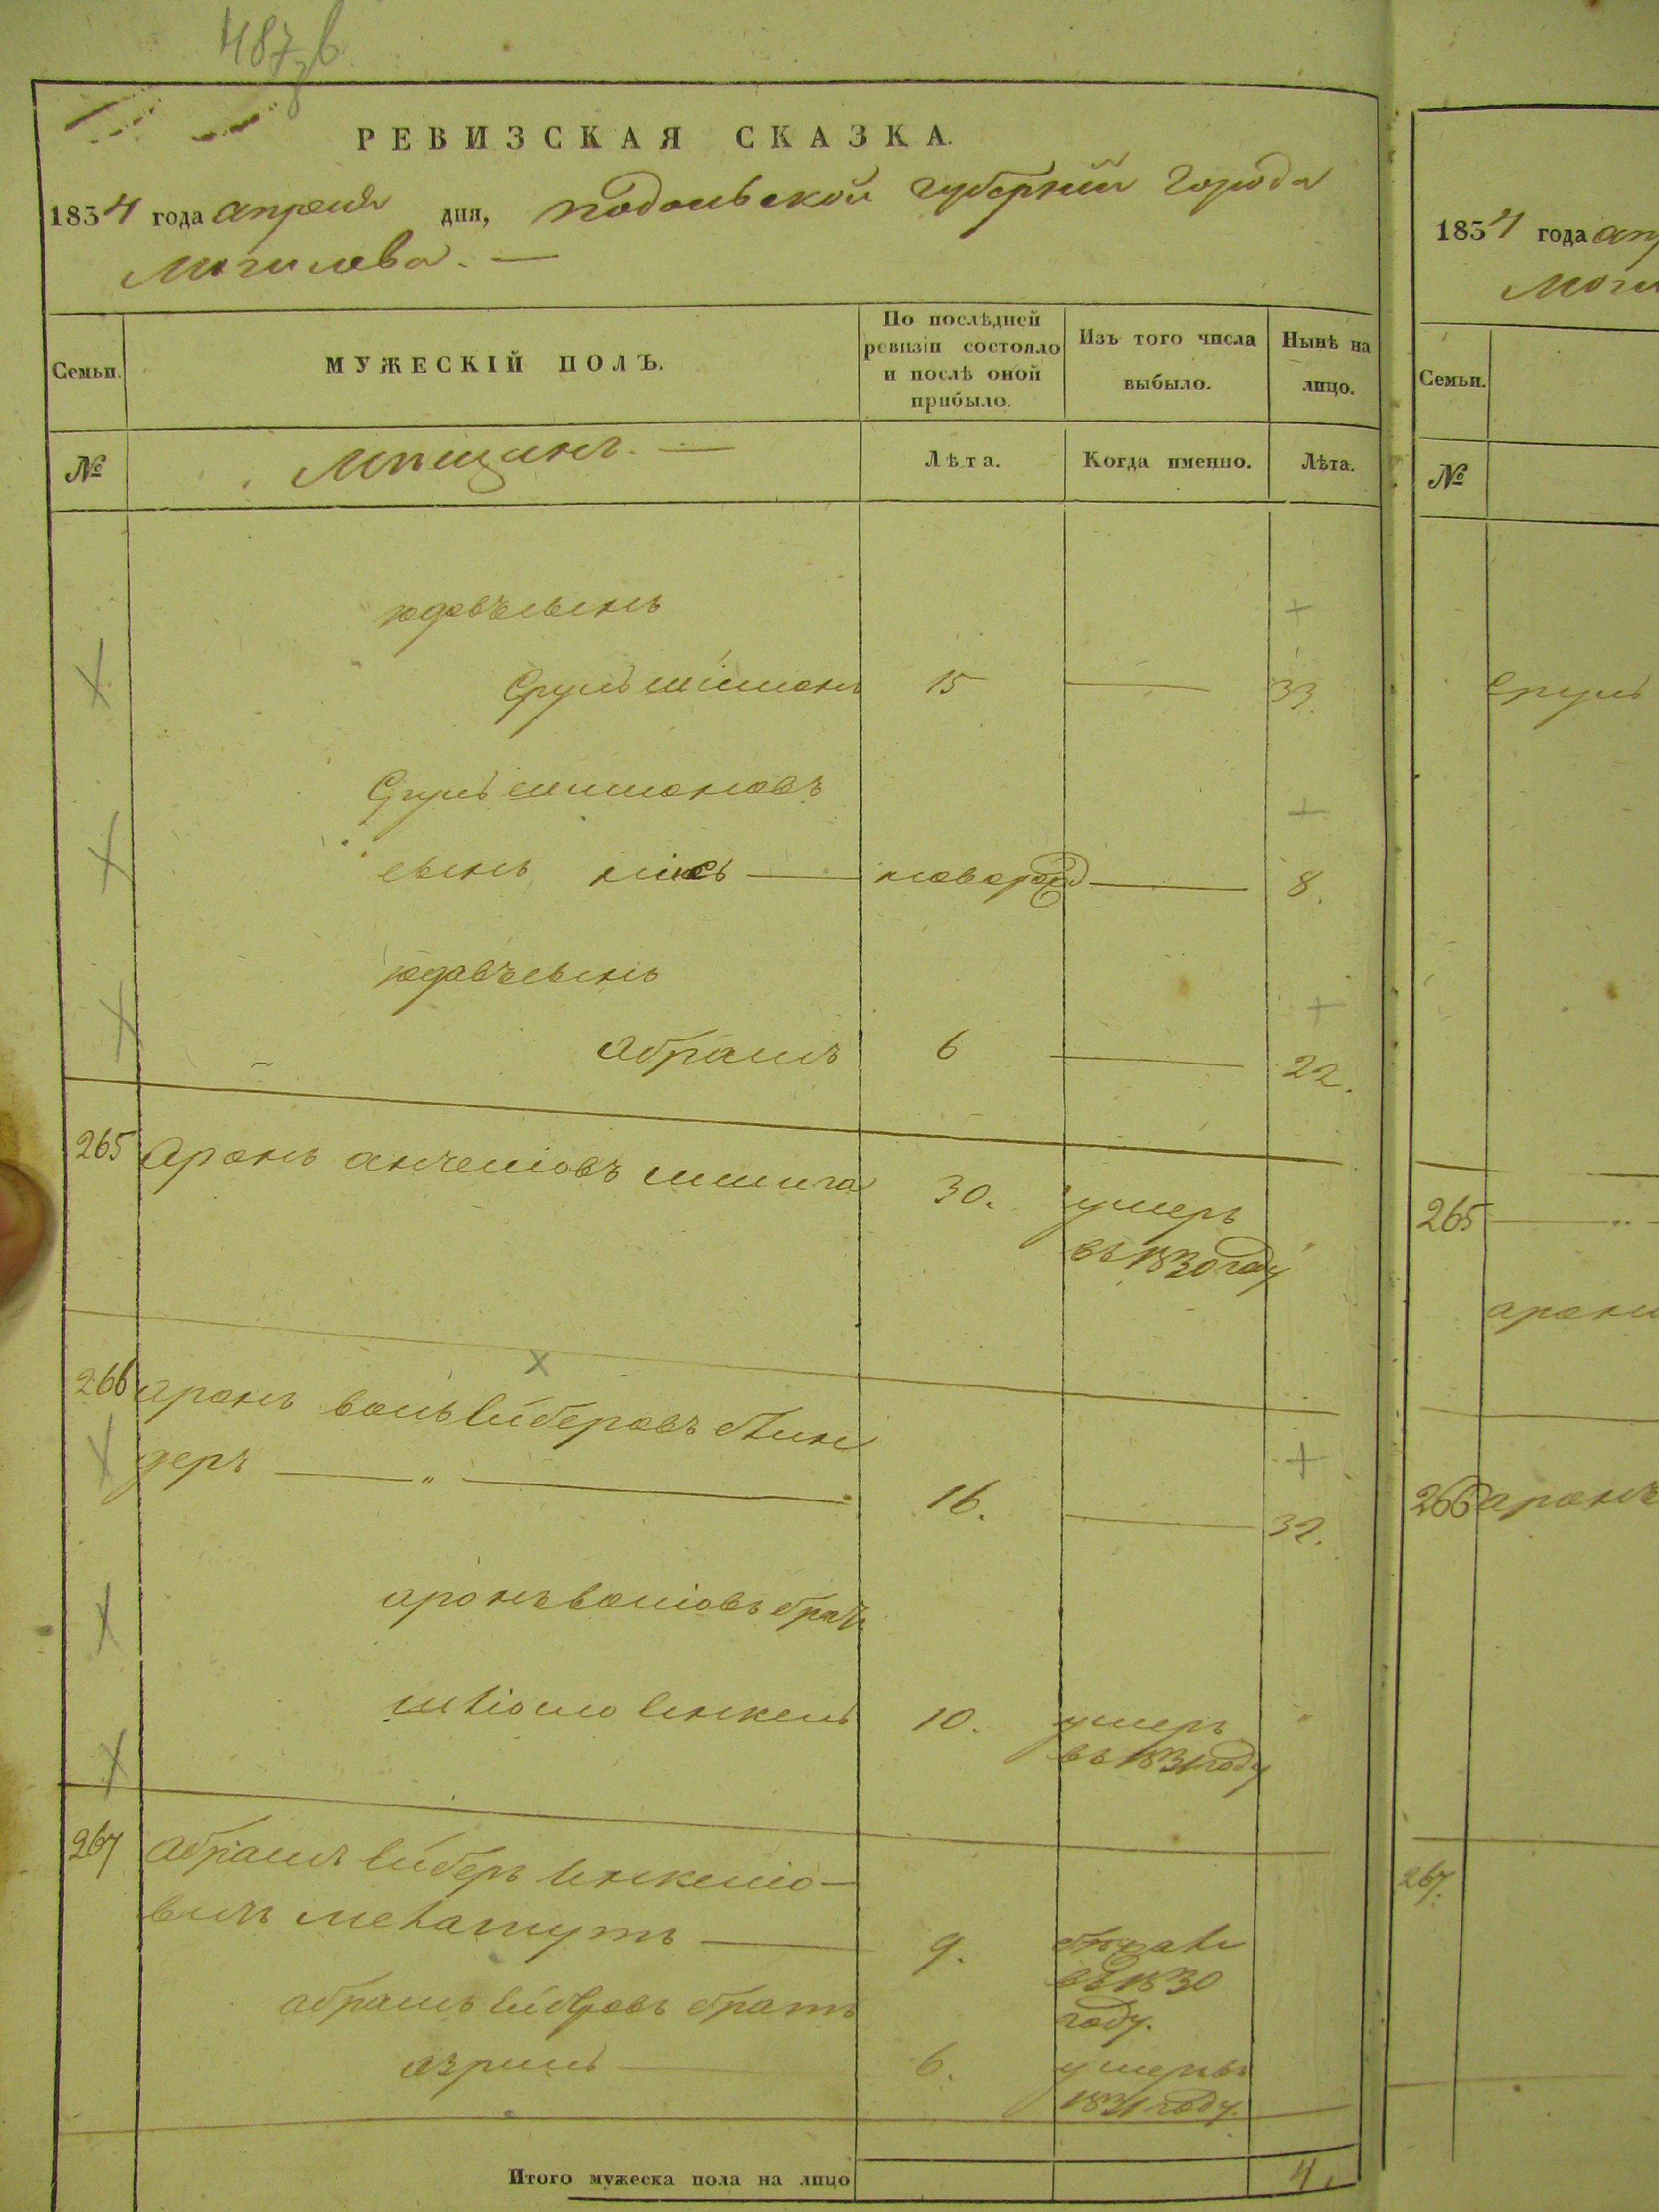 487 в
РЕВИЗСКАЯ СКАЗКА.
1834 года апреля дня, подольской губернии города
Могилева. —
Семьи.
МУЖЕСКІЙ ПОЛЪ.
По послѣдней ревизіи состояло и послѣ оной прибыло.
Изъ того числа выбыло.
Нынѣ на лицо.
№
Мѣщанъ. —
Лѣта.
Когда именно.
Лѣта.
юдовъ сынъ
Сруль шимонъ 15 — 33.
Сруль шимоновъ
сынъ — новорож — 8.
юдовъ сынъ
абрамъ 6 — 22.
265 аронъ анчеліовъ 30. умеръ
въ 1830 году
266 аронъ волълейберовъ блин
деръ — „ — 16. — 32.
аронъ воліовъ братъ
шліомо 10. умеръ
въ 1831 году
267 абрамъ лейберъ
вичъ 9. бѣжалъ
въ 1830
году.
абрамъ лейбовъ братъ
азриль — 6. умеръ въ
1831 году.
Итого мужеска пола на лицо 4.
1834 года апр
Моги
Семьи.
№
Сруль
265 — „ —
арон
266 аронъ
267.